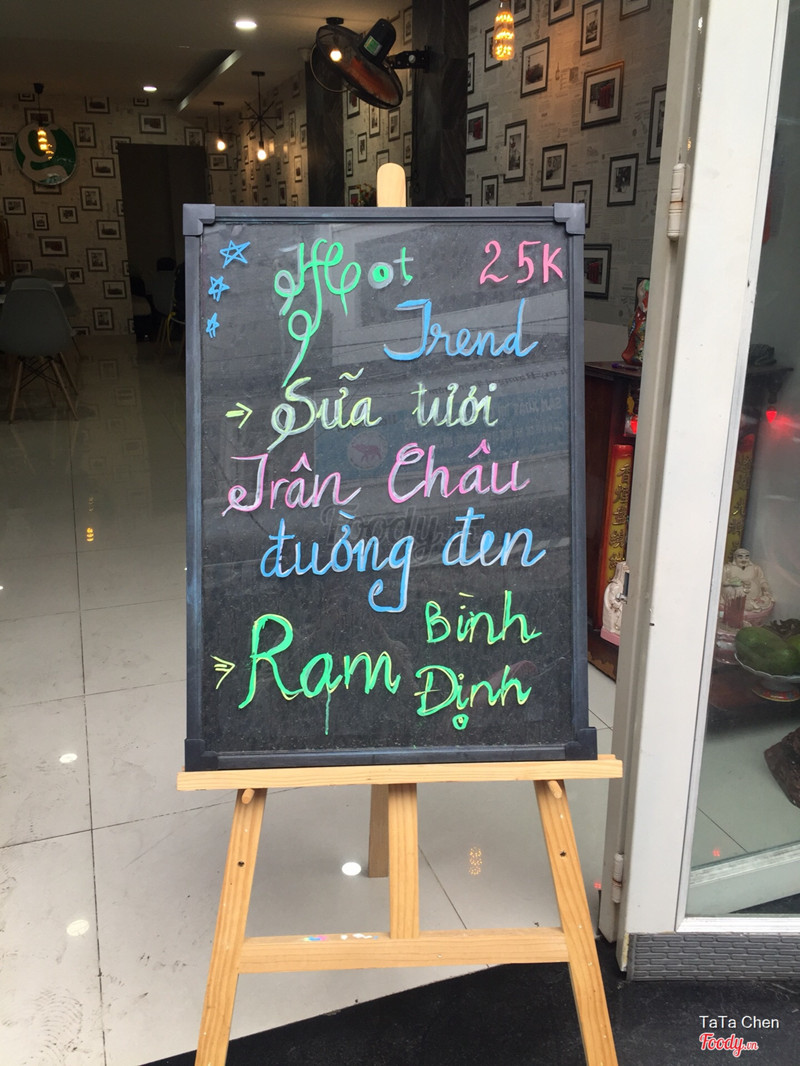 Hot 25K
Trend
Sữa tươi
Trân Châu
đường đen
Ram Bình
Định
Foody.vn
TaTa Chen
Foody.vn